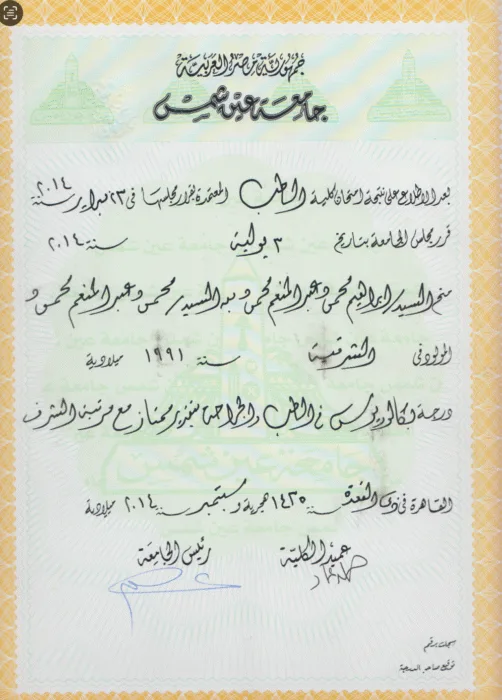 جمهورية مصر العربية
جامعة عين شمس
بعد الاطلاع على نتيجة امتحان كلية الطب المعتمدة بقرار مجلسها في ٢٣ فبراير سنة ٢٠١٤
قرر مجلس الجامعة بتاريخ ٣ يولية سنة ٢٠١٤
منح السيد/ ابراهيم محمود عبد المنعم محمود بن السيد/ محمود عبد المنعم محمود
المولود في الشرقية سنة ١٩٩١ ميلادية
درجة بكالوريوس في الطب والجراحة بتقدير ممتاز مع مرتبة الشرف
القاهرة في ذي القعدة سنة ١٤٣٥ هجرية و سبتمبر سنة ٢٠١٤ ميلادية
عميد الكلية
رئيس الجامعة
جامعة عين شمس
سجلت برقم
توقيع صاحب الدرجة